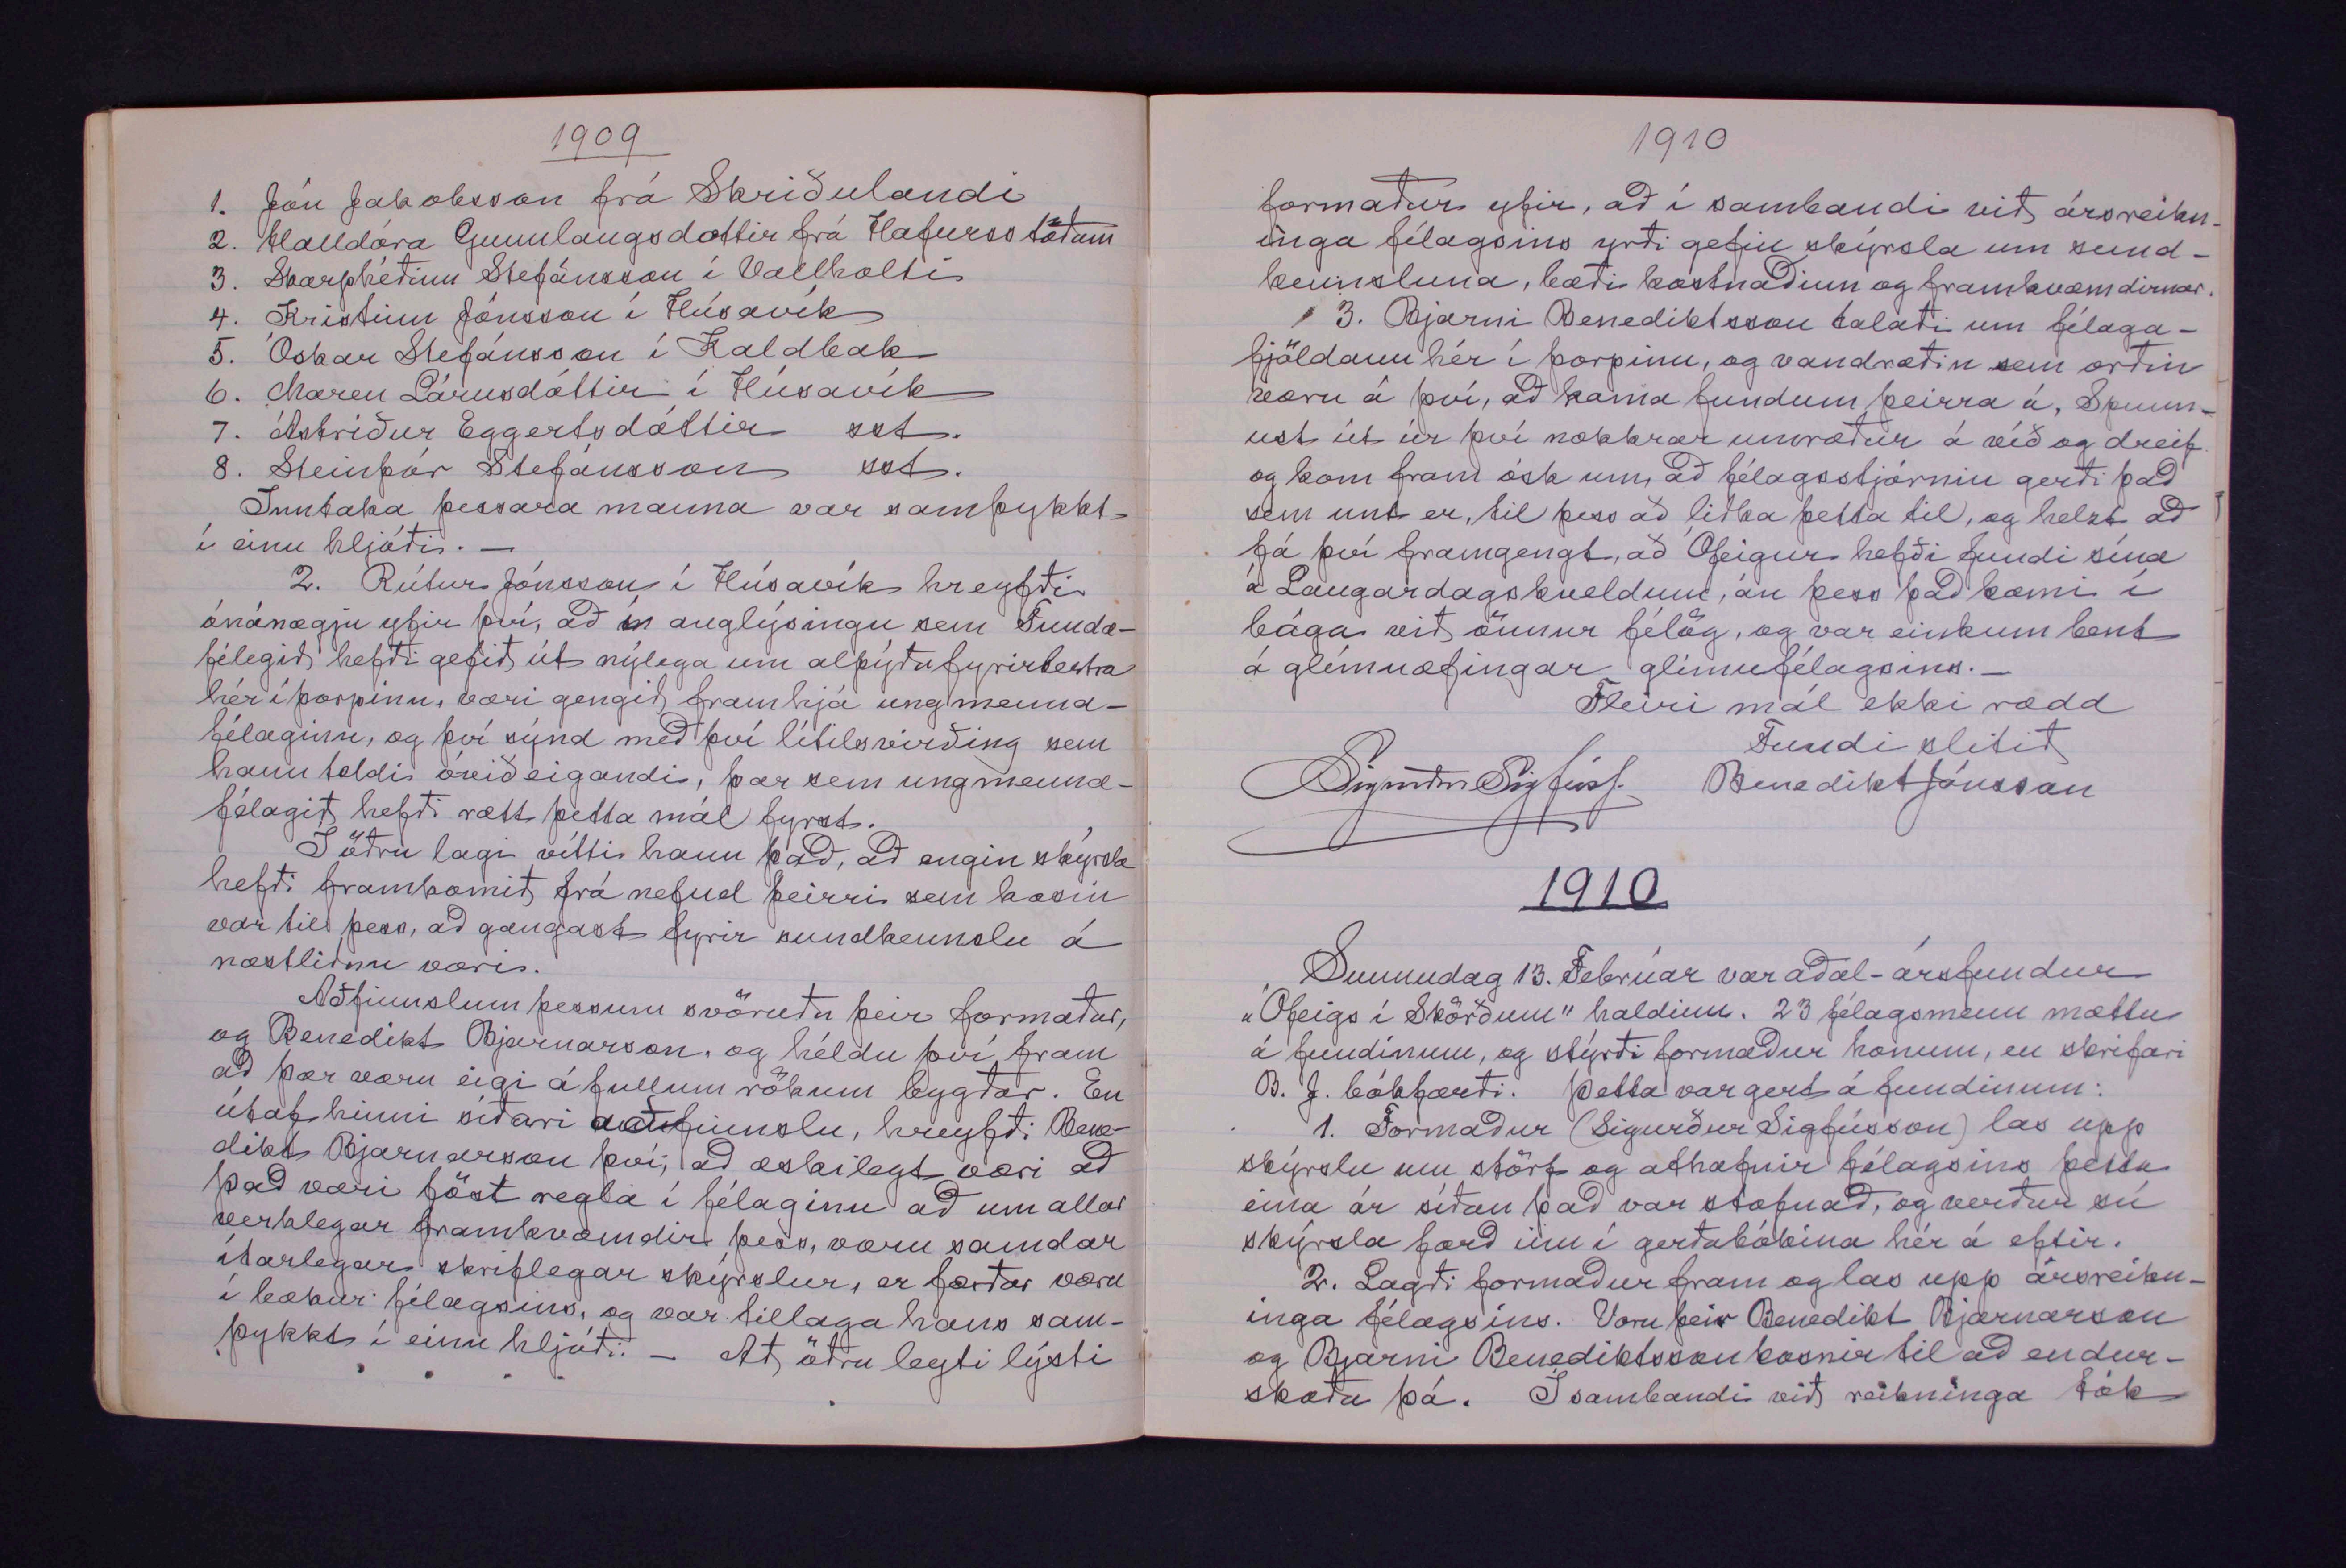 1909
1. Jón Jakobsson frá Skriðulandi
2. Halldóra Gunnlaugsdottir frá Hafursstöðum
3. Skarphéðinn Stefánsson í Vallholti
4. Kristinn Jónsson í Húsavík
5. Óskar Stefánsson í Kaldbak
6. Maren Lárusdóttir í Húsavík
7. Ástríður Eggertsdóttir sst.
8. Steinþór Stefánsson sst.
Inntaka þessara manna var samþykkt
í einu hljóði. —
2. Rútur Jónsson í Húsavík hreyfði
ónánægju yfir því, að in auglýsingu sem Funda-
félegið hefði gefið út nýlega um alþýðufyrirlestra
hér í þorpinu, væri gengið framhjá ungmenna-
félaginu, og því sýnd með því lítilsvirðing sem
hann taldi óviðeigandi, þar sem ungmenna-
félagið hefði rætt þetta mál fyrst.
Í öðru lagi vítti hann það, að engin skýrsla
hefði framkomið frá nefnd þeirri sem kosin
var til þess, að gangast fyrir sundkennslu á
næstliðnu vori.
Aðfinnslum þessum svöruðu þeir formaður,
og Benedikt Bjarnarson, og héldu því fram
að þær væru eigi á fullum rökum bygðar. En
útaf hinni síðari aðfinnslu, hreyfði Bene-
dikt Bjarnarson því, að æskilegt væri að
það væri föst regla í félaginu að um allar
verklegar framkvæmdir þess, væru samdar
ítarlegar skriflegar skýrslur, er færðar væru
í bækur félagsins, og var tillaga hans sam-
þykkt í einu hljóði. — At öðru leyti lýsti
1910
formaður yfir, að í sambandi við ársreikn-
inga félagsins yrði gefin skýrsla um sund-
kennsluna, bæði kostnaðinn og framkvæmdirnar.
3. Bjarni Benediktsson talaði um félaga-
fjöldann hér í þorpinu, og vandræðin sem orðin
væru á því, að koma fundum þeirra á, Spunn-
ust út úr því nokkrar umræður á víð og dreif
og kom fram ósk um, að félagsstjórnin gerði það
sem unt er, til þess að liðka þetta til, og helzt að
fá því framgengt, að Ófeigur hefði fundi sína
á Laugardagskveldum, án þess það kæmi í
bága við önnur félög, og var einkum bent
á glímuæfingar glímufélagsins. —
Fleiri mál ekki rædd
Fundi slitið
Sigurður Sigfúss. Benedikt Jónsson
1910
Sunnudag 13. Febrúar var aðal-ársfundur
„Ófeigs í Skörðum" haldinn. 23 félagsmenn mættu
á fundinum, og stýrði formaður honum, en skrifari
B. J. bókfærði. Þetta var gert á fundinum:
1. Formaður (Sigurður Sigfússon) las upp
skýrslu um störf og athafnir félagsins þetta
eina ár síðan það var stofnað, og verður sú
skýrsla færð inn í gerðabókina hér á eftir.
2. Lagði formaður fram og las upp ársreikn-
inga félagsins. Voru þeir Benedikt Bjarnarson
og Bjarni Benediktsson kosnir til að endur-
skoða þá. Í sambandi við reikninga tók